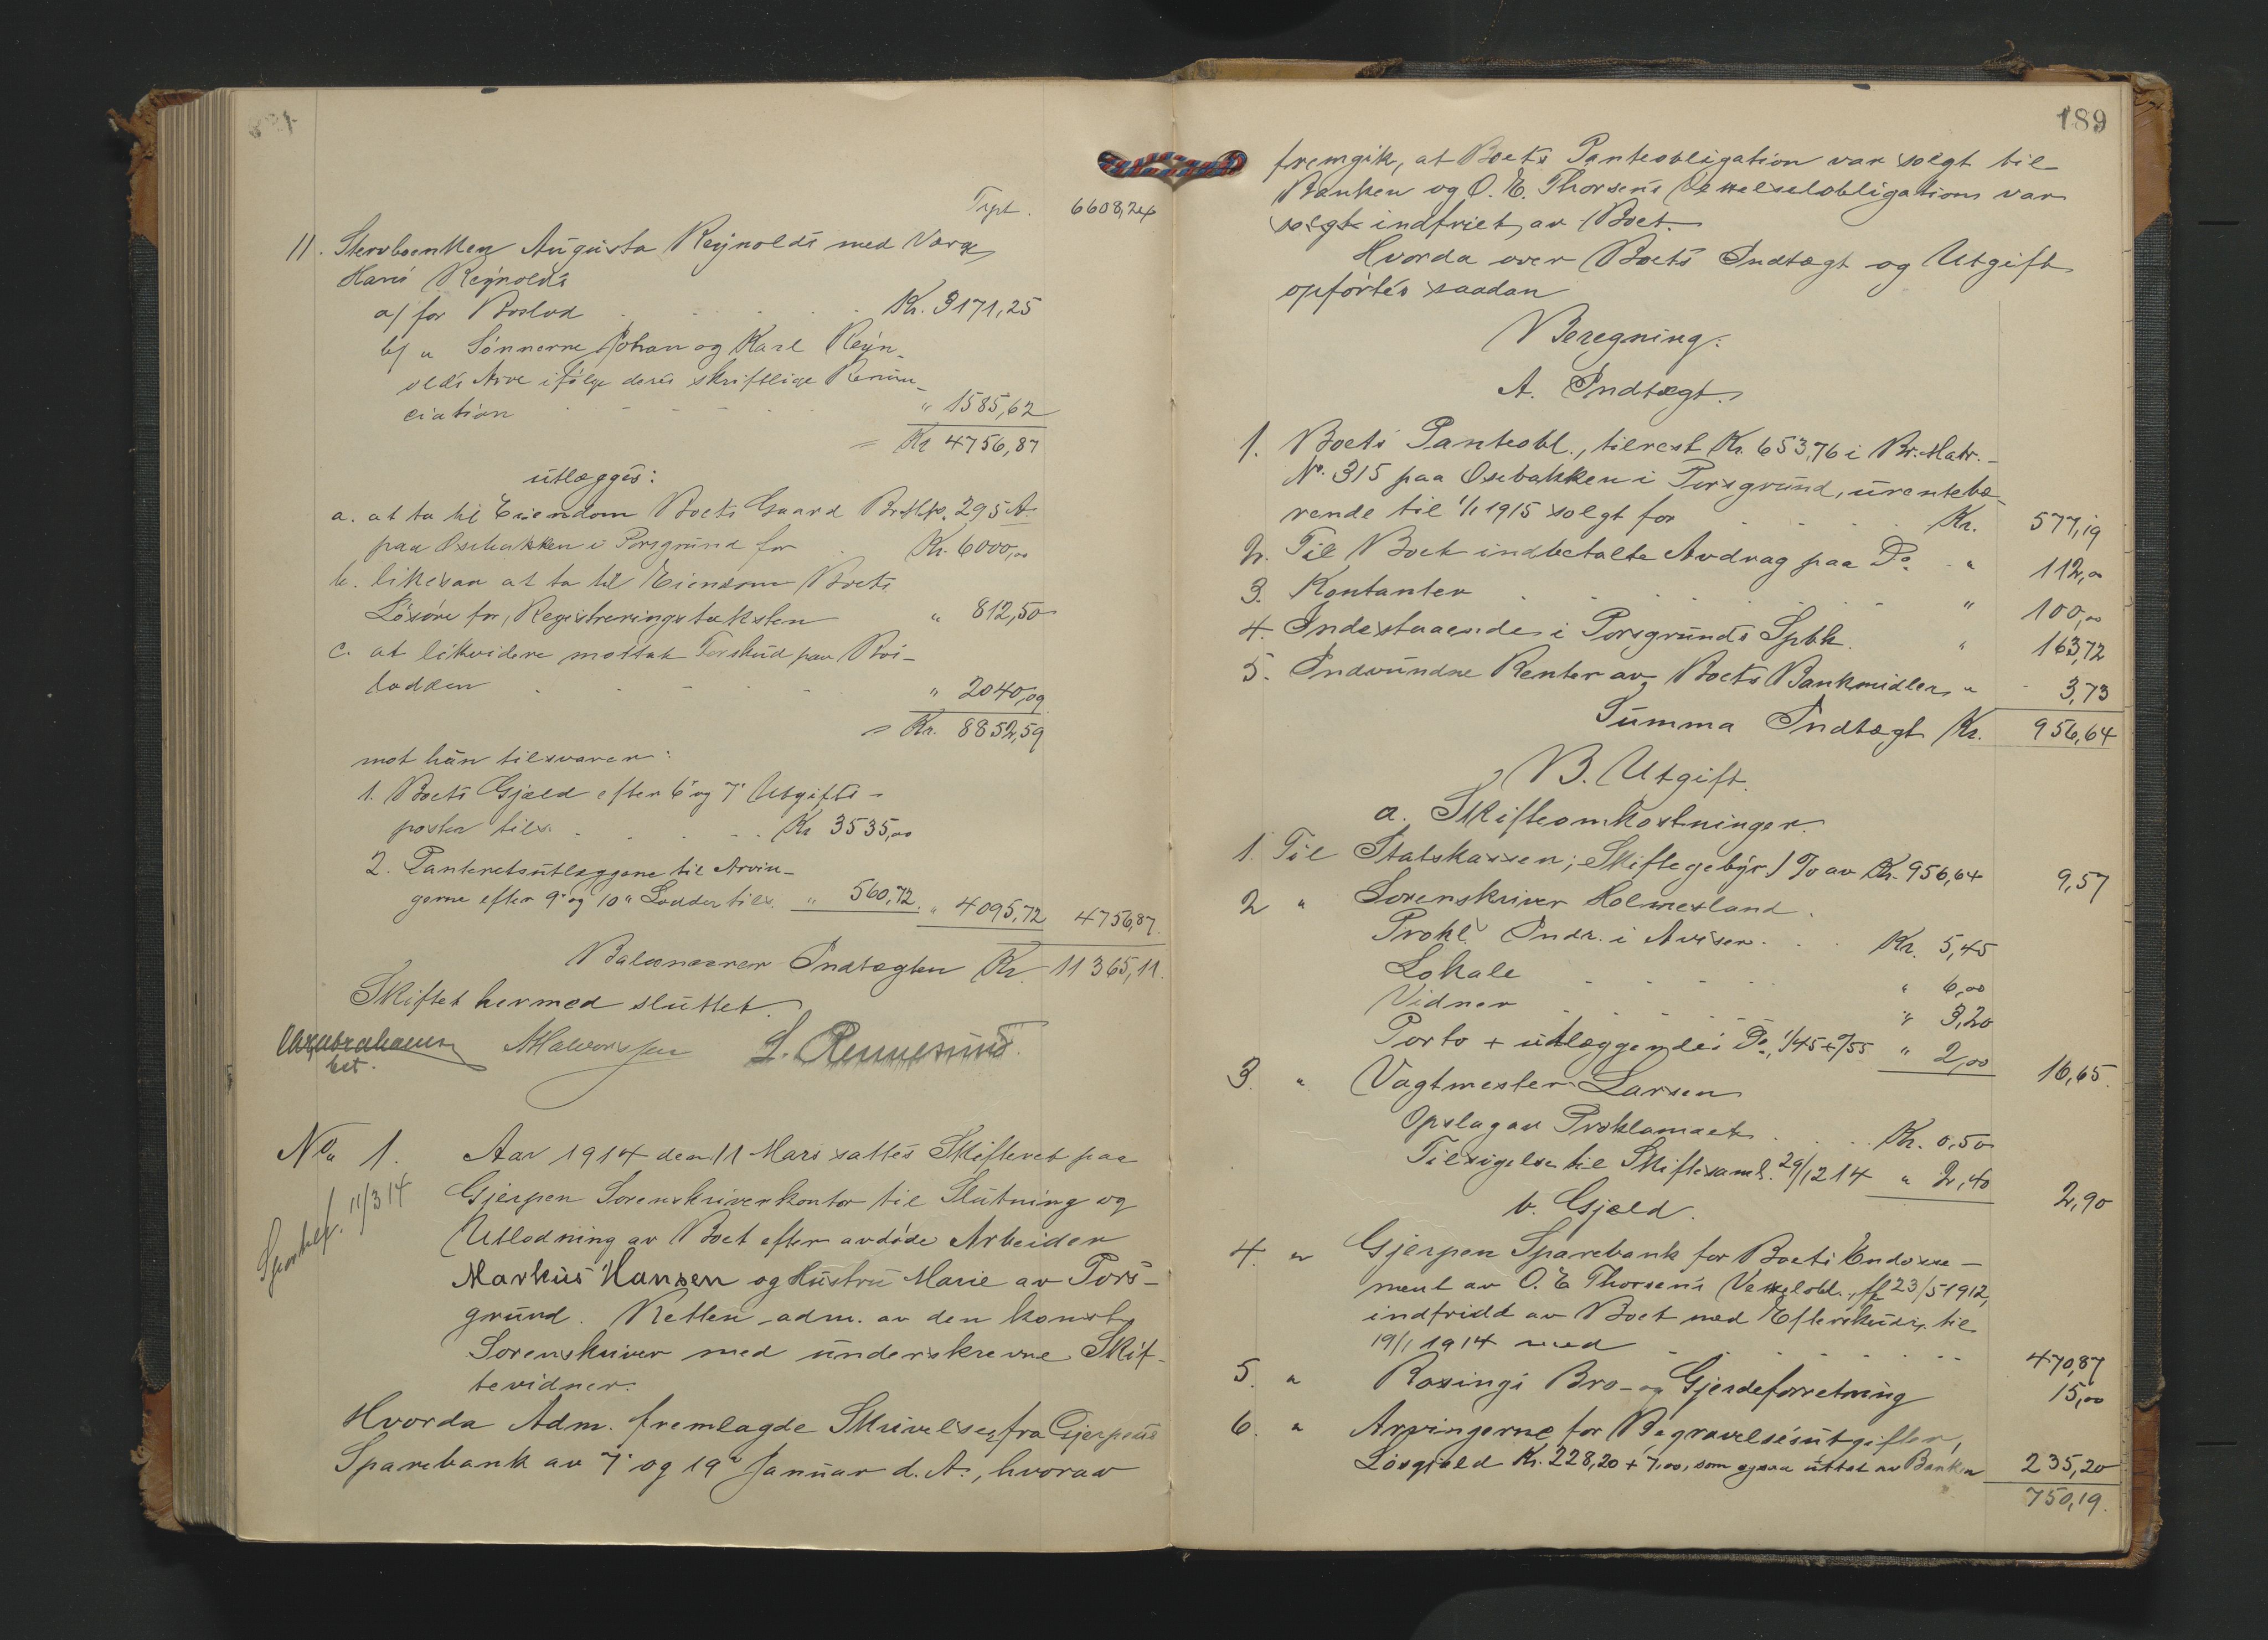 Trpt. 6608,24
11. Stervboenken Augusta Reynolds med Værge
Hans Reynolds
a/ for Boslod Kr. 3171,25
b/ " Sönnerne Johan og Karl Reyn-
olds Arve ifölge deres skriftlige Renun-
ciation " 1585,62
= Kr 4756,87
utlægges:
a. at ta til Eiendom Boets Gaard Br.No. 295 A.
paa Osebakken i Porsgrund for Kr. 6000,00
b. likesaa at ta til Eiendom Boets
Lösöre for Registreringstaksten " 812,50
c. at likvidere mottat Forskud paa Bos-
lodden " 2040,09
= Kr. 8852,59
mot hun tilsvarer:
1. Boets Gjæld efter 6' og 7' Utgifts-
poster tils. Kr 3535,00
2. Panteretsutlæggene til Arvin-
gerne efter 9' og 10' Lodder tils. " 560,72 " 4095,72 4756,87
Balancerer Indtægten Kr 11365,11.
Skiftet hermed sluttet.
Abrahamsen AHalvorsen L. Rennesund
bet.
No. 1. Aar 1914 den 11 Mars sattes Skifteret paa
Sportelf. 11/3 14
Gjerpen Sorenskriverkontor til Slutning og
Utlodning av Boet efter avdöde Arbeider
Markus Hansen og Hustru Marie av Pors-
grund. Retten adm. av den konst.
Sorenskriver med underskrevne Skif-
tevidner.
Hvorda Adm. fremlagde Skrivelser fra Gjerpens
Sparebank av 7' og 19' Januar d. A., hvorav
189
fremgik, at Boets Panteobligation var solgt til
Banken og O. E. Thorsens Vekselobligation var
solgt indfriet av Boet.
Hvorda over Boets Indtægt og Utgift
opförtes saadan
Beregning:
A. Indtægt.
1. Boets Panteobl., tilrest Kr. 653,76 i Br. Matr.-
No. 315 paa Osebakken i Porsgrund, urentebæ-
rende til 1/1 1915 solgt for Kr. 577,19
2. Til Boet indbetalte Avdrag paa Do. " 112,00
3. Kontanter " 100,00
4. Indestaaende i Porsgrunds Spbk. " 163,72
5. Indvundne Renter av Boets Bankmidler " 3,73
Summa Indtægt Kr. 956,64
B. Utgift.
a. Skifteomkostninger.
1. Til Statskassen; Skiftegebyr 1 % av Kr. 956,64 9,57
2 " Sorenskriver Holmesland.
Prokl. Indr. i Aviser. Kr. 5,45
Lokale " 6,00
Vidner " 3,20
Porto + utlæggende i Do., 1/45 + 0/55 " 2,00 16,65.
3. " Vagtmester Larsen
Opslag av Proklamaet Kr. 0,50
Tilsigelse til Skiftesaml. 29/1 2 14 " 2,40 2,90
b. Gjæld.
4. " Gjerpen Sparebank for Boets Endosse-
ment av O. E Thorsens Vekselobl., ff 23/5 1912,
indfridd av Boet med Efterskuds. til
19/1 1914 med 470,87
5. " Rosings Bro- og Gjerdeforretning 15,00
6. " Arvingerne for Begravelsesutgifter,
Lösgjæld Kr. 228,20 + 7,00, som ogsaa uttat av Banken 235,20
750,19.